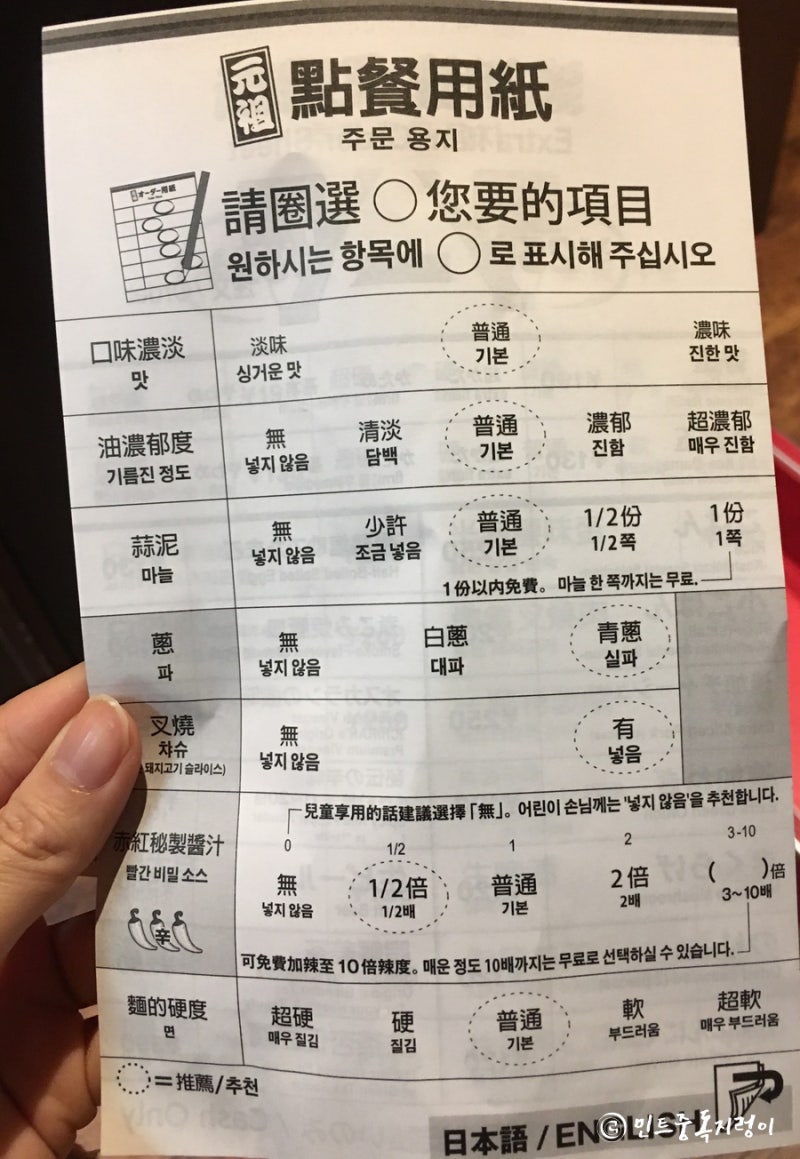 元祖 點餐用紙
주문 용지
オーダー用紙
請圈選 ○ 您要的項目
원하시는 항목에 ○ 로 표시해 주십시오
口味濃淡 淡味 普通 濃味
맛 싱거운 맛 기본 진한 맛
油濃郁度 無 清淡 普通 濃郁 超濃郁
기름진 정도 넣지 않음 담백 기본 진함 매우 진함
蒜泥 無 少許 普通 1/2份 1份
마늘 넣지 않음 조금 넣음 기본 1/2쪽 1쪽
1份以内免費。 마늘 한 쪽까지는 무료.
蔥 無 白蔥 青蔥
파 넣지 않음 대파 실파
叉燒 無 有
챠슈 넣지 않음 넣음
돼지고기 슬라이스)
兒童享用的話建議選擇「無」。어린이 손님께는 '넣지 않음'을 추천합니다.
赤紅秘製醬汁 0 1/2 1 2 3-10
빨간 비밀 소스 無 1/2倍 普通 2倍 ( )倍
넣지 않음 1/2배 기본 2배 3~10배
辛
可免費加辣至10倍辣度。매운 정도 10배까지는 무료로 선택하실 수 있습니다.
麵的硬度 超硬 硬 普通 軟 超軟
면 매우 질김 질김 기본 부드러움 매우 부드러움
=推薦/추천
日本語 / ENGLISH
ⓒ민트중독지렁이